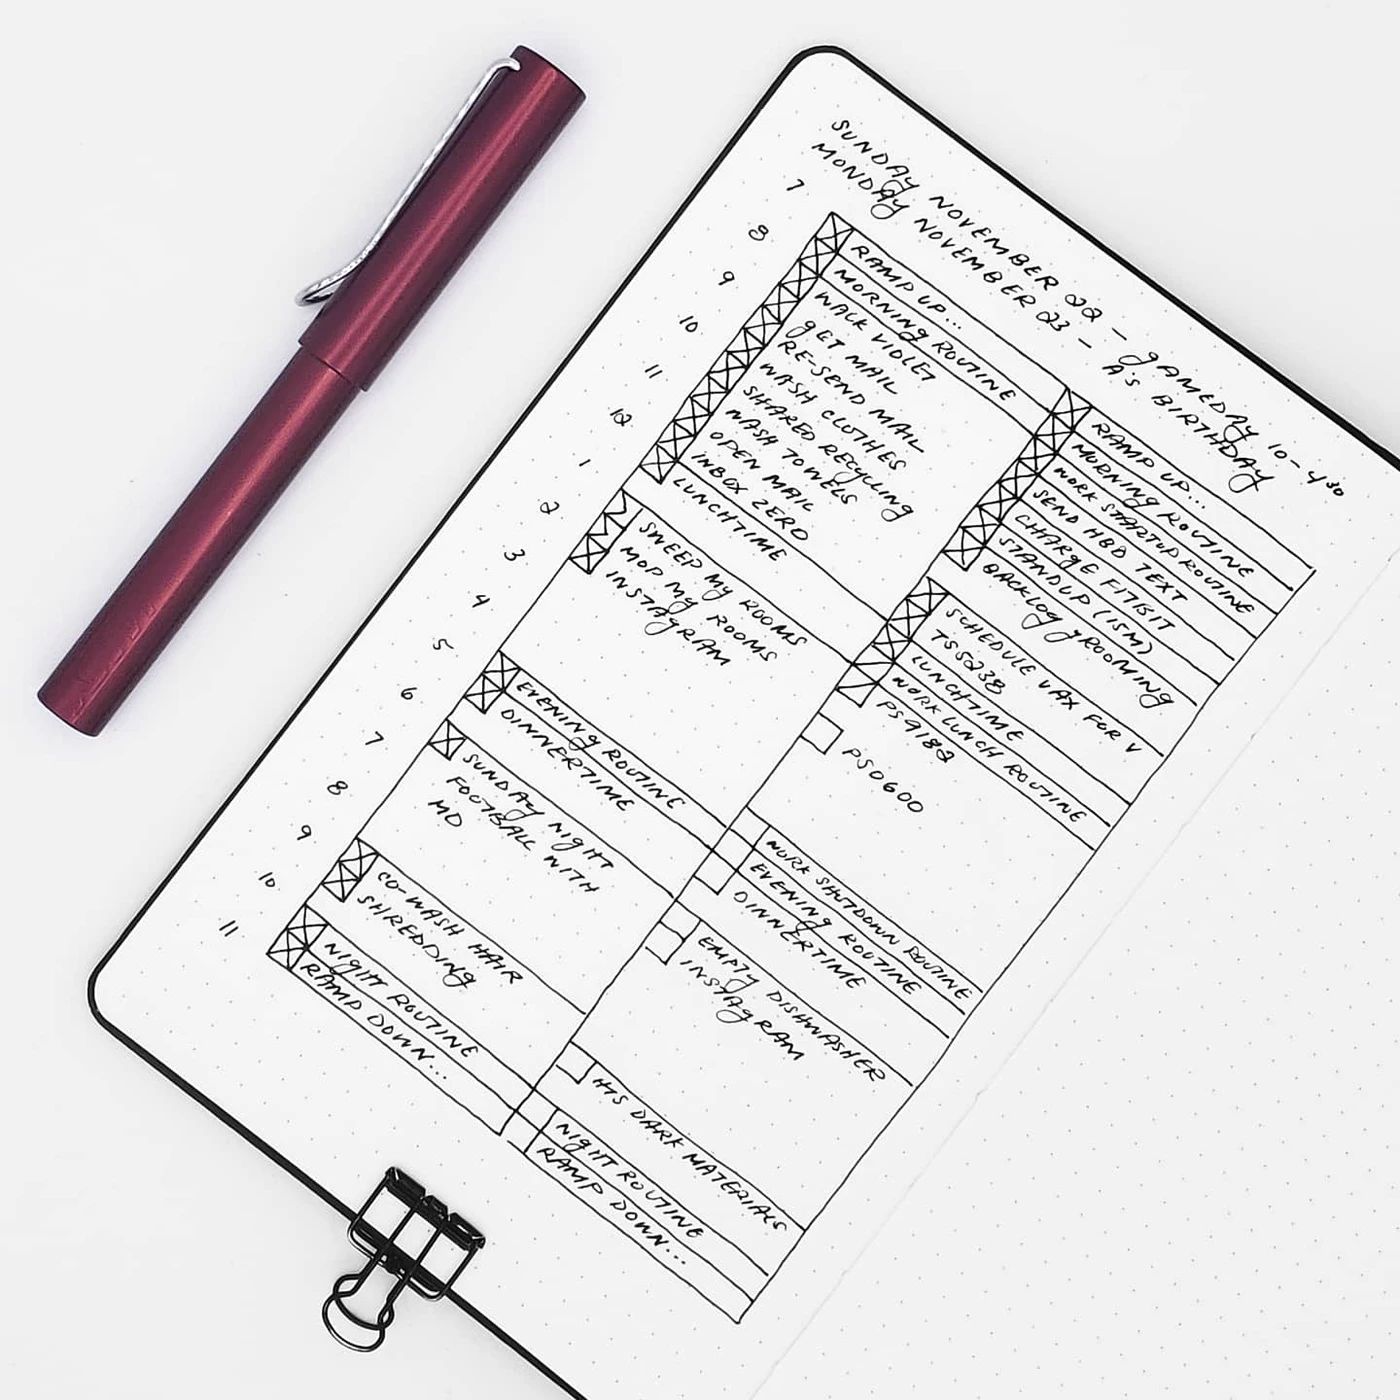 SUNDAY NOVEMBER 22 – GAMEDAY 10–4:30
MONDAY NOVEMBER 23 – A'S BIRTHDAY
7
8
9
10
11
12
1
2
3
4
5
6
7
8
9
10
11
RAMP UP...
MORNING ROUTINE
WALK VIOLET
GET MAIL
RE-SEND MAIL
WASH CLOTHES
SHARED RECYCLING
WASH TOWELS
OPEN MAIL
INBOX ZERO
LUNCHTIME
SWEEP MY ROOMS
MOP MY ROOMS
INSTAGRAM
EVENING ROUTINE
DINNERTIME
SUNDAY NIGHT
FOOTBALL WITH
MD
CO-WASH HAIR
SHREDDING
NIGHT ROUTINE
RAMP DOWN...
RAMP UP...
MORNING ROUTINE
WORK STARTUP ROUTINE
SEND HBD TEXT
CHARGE FITBIT
STANDUP (ISM)
BACKLOG GROOMING
SCHEDULE VAX FOR V
TS5238
LUNCHTIME
WORK LUNCH ROUTINE
PS9182
PS0600
WORK SHUTDOWN ROUTINE
EVENING ROUTINE
DINNERTIME
EMPTY DISHWASHER
INSTAGRAM
HIS DARK MATERIALS
NIGHT ROUTINE
RAMP DOWN...